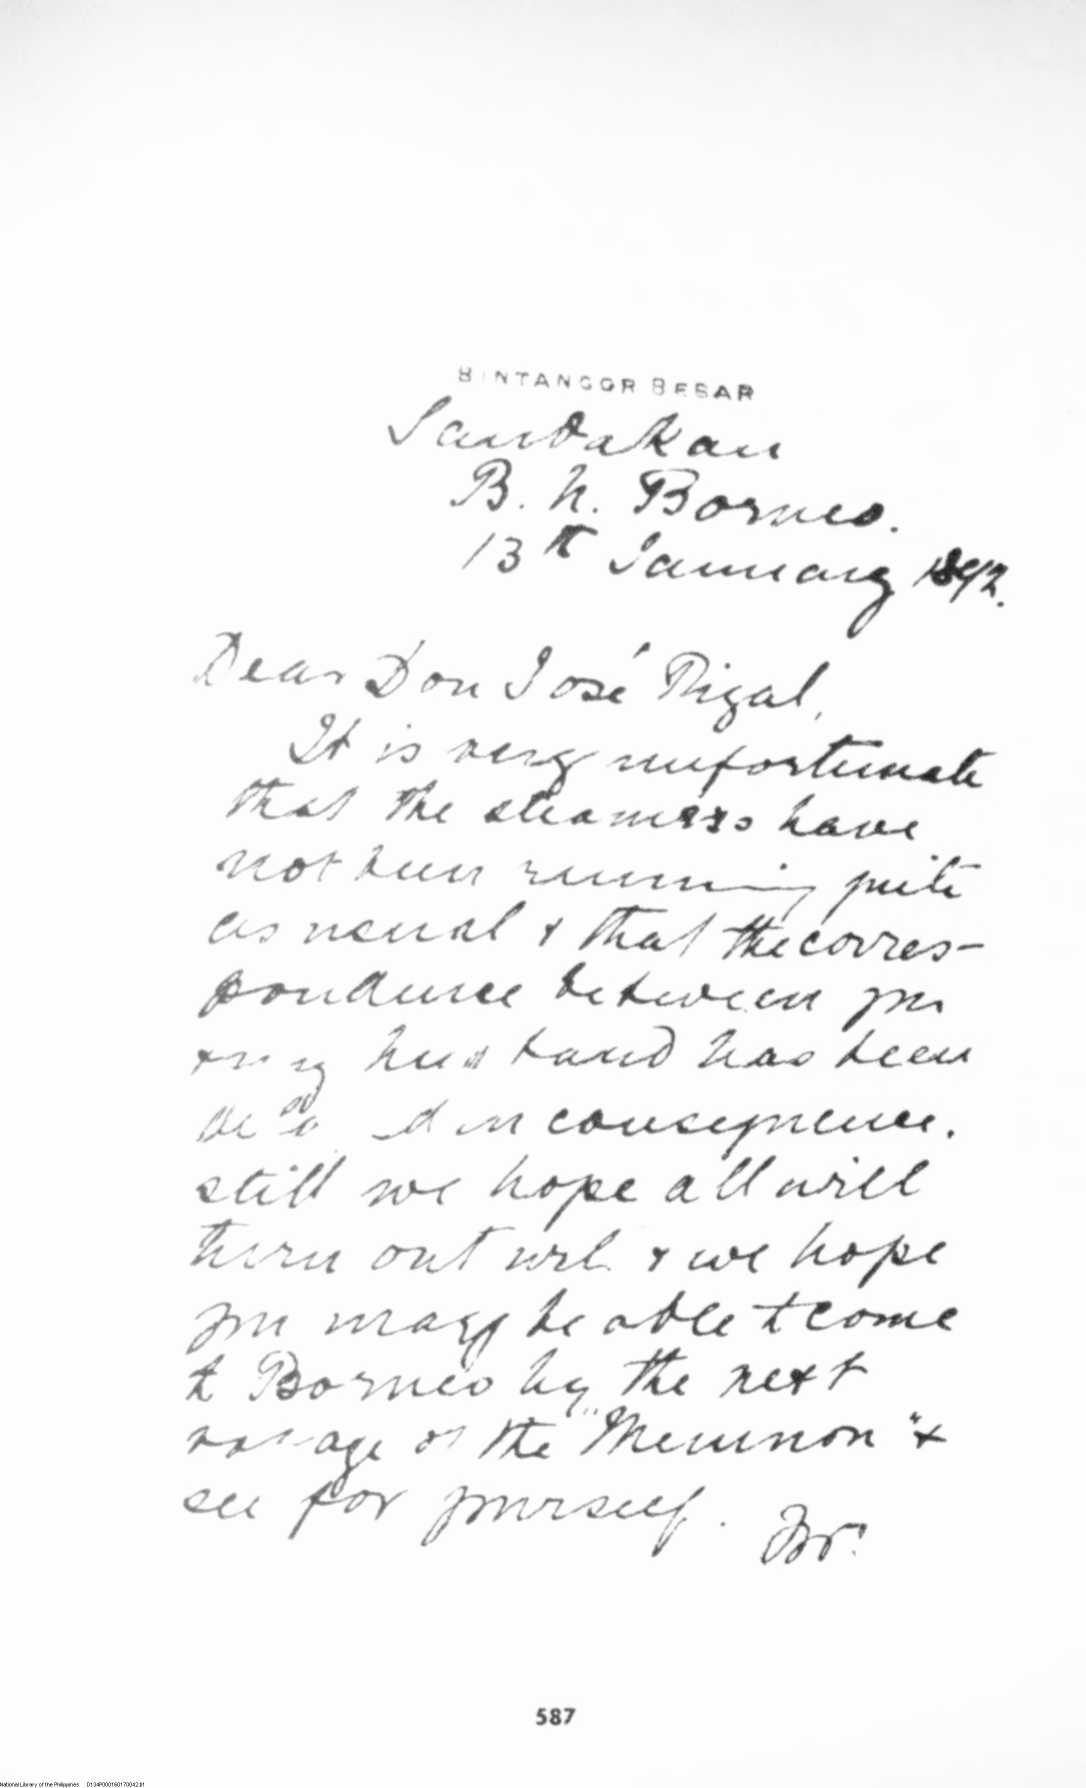 BINTANGOR BESAR
Sandakan
B. N. Borneo.
13th January 1892.
Dear Don José Rizal,
It is very unfortunate
that the steamers have
not been running quite
as usual & that the corres-
pondence between you
& my husband has been
in consequence.
still we hope all will
turn out well & we hope
you may be able to come
to Borneo by the next
voyage of the "Memnon" &
see for yourself.
587
National Library of the Philippines